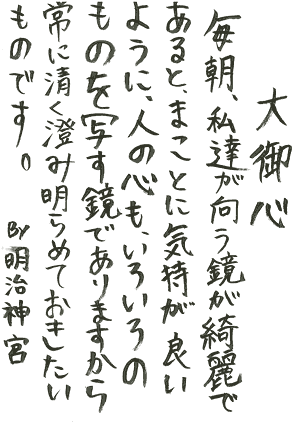 大御心
毎朝、私達が向う鏡が綺麗で
あると、まことに気持が良い
ように、人の心も、いろいろの
ものを写す鏡でありますから
常に清く澄み明らめておきたい
ものです。
By明治神宮